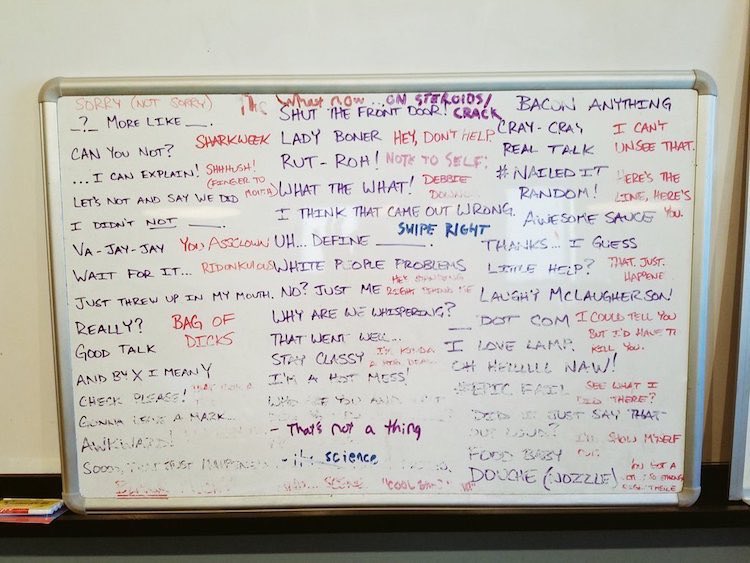 SORRY (NOT SORRY)
_?_ MORE LIKE ___.
SHARKWEEK
CAN YOU NOT?
... I CAN EXPLAIN!
SHHHUSH!
(FINGER TO
MOUTH)
LET'S NOT AND SAY WE DID
I DIDN'T NOT ____.
VA-JAY-JAY
YOU ASSCLOWN
WAIT FOR IT...
RIDONKULOUS
JUST THREW UP IN MY MOUTH.
REALLY?
BAG OF
DICKS
GOOD TALK
AND BY X I MEAN Y
CHECK PLEASE!
GONNA LEAVE A MARK...
AWKWARD!
SOOOO, THAT JUST HAPPENED
The What now... ON STEROIDS/
CRACK
SHUT THE FRONT DOOR!
LADY BONER
HEY, DON'T HELP.
RUT-ROH!
NOTE TO SELF:
WHAT THE WHAT!
DEBBIE
DOWNER
I THINK THAT CAME OUT WRONG.
SWIPE RIGHT
UH... DEFINE ____.
WHITE PEOPLE PROBLEMS
HE'S STANDING
RIGHT BEHIND ME
NO? JUST ME
WHY ARE WE WHISPERING?
THAT WENT WELL...
STAY CLASSY
I'M KINDA
A BIG DEAL
I'M A HOT MESS!
WHO ARE YOU AND
- That's not a thing
- science
SCENE
BACON ANYTHING
CRAY-CRAY
I CAN'T
UNSEE THAT.
REAL TALK
#NAILED IT
HERE'S THE
LINE, HERE'S
YOU.
RANDOM!
AWESOME SAUCE
THANKS... I GUESS
LITTLE HELP?
THAT. JUST.
HAPPENE
LAUGHY MCLAUGHERSON!
__ DOT COM
I COULD TELL YOU
BUT I'D HAVE T
KILL YOU.
I LOVE LAMP.
OH HELLLLL NAW!
#EPIC FAIL
SEE WHAT I
DID THERE?
DID I JUST SAY THAT
OUT LOUD?
I'LL SHOW MYSELF
OUT.
FOOD BABY
DOUCHE (NOZZLE)
YOU GOT A